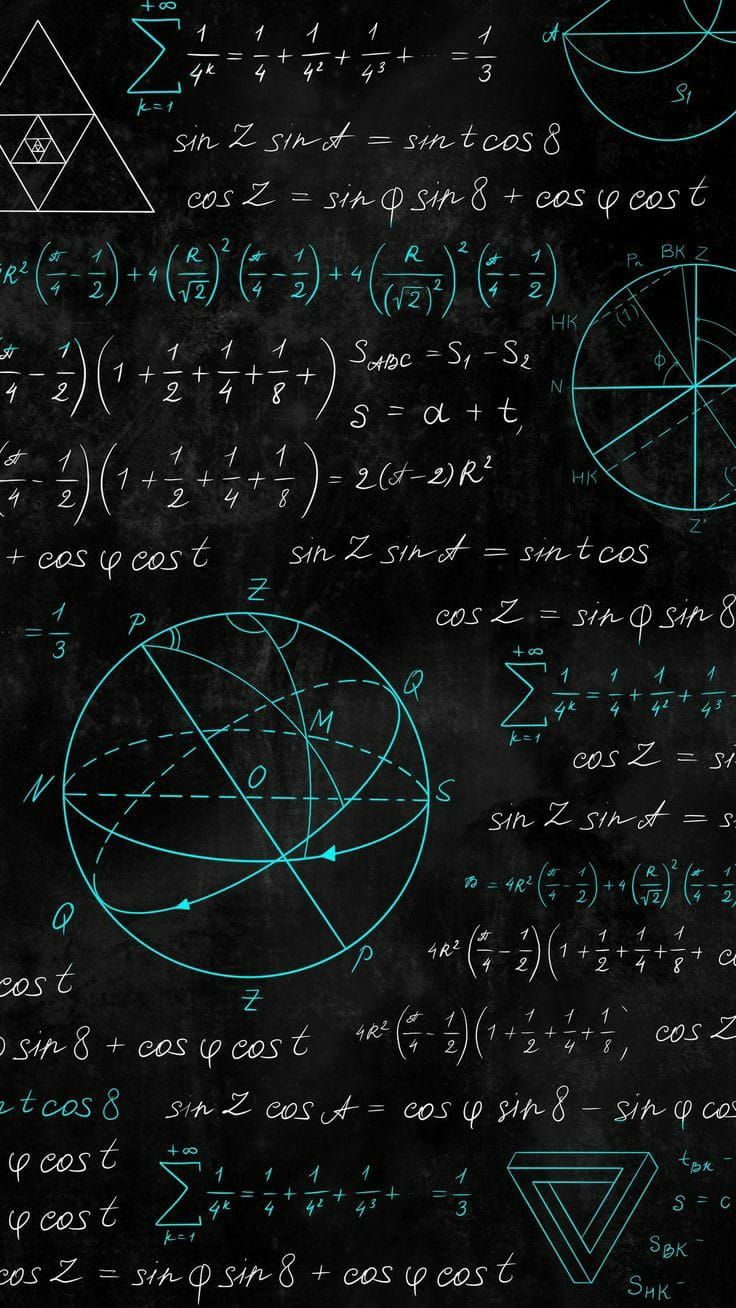 +∞
∑ 1/4ᵏ = 1/4 + 1/4² + 1/4³ + ... = 1/3
k=1
A
S₁
sin Z sin A = sin t cos 8
cos Z = sin φ sin 8 + cos φ cos t
R² (π/4 - 1/2) + 4 (R/√2)² (π/4 - 1/2) + 4 (R/(√2)²)² (π/4 - 1/2)
Pₙ BK Z
HK (1)
π/4 - 1/2) (1 + 1/2 + 1/4 + 1/8 + )
S_ABC = S₁ - S₂
Φ
N
S = α + t,
(π/4 - 1/2) (1 + 1/2 + 1/4 + 1/8) = 2(π-2)R²
HK
Z'
+ cos φ cos t
sin Z sin A = sin t cos
= 1/3
Z
P
cos Z = sin φ sin 8
+∞
∑ 1/4ᵏ = 1/4 + 1/4² + 1/4³
k=1
Q
M
cos Z = si
N O S
sin Z sin A = s
= 4R² (π/4 - 1/2) + 4 (R/√2)² (π/4 - 1/2
Q
P
4R² (π/4 - 1/2) (1 + 1/2 + 1/4 + 1/8 +
cos t
Z
φ sin 8 + cos φ cos t
4R² (π/4 - 1/2) (1 + 1/2 + 1/4 + 1/8,
cos Z
t cos 8
sin Z cos A = cos φ sin 8 - sin φ cos
φ cos t
+∞
∑ 1/4ᵏ = 1/4 + 1/4² + 1/4³ + ... = 1/3
k=1
t_BK -
S = c
φ cos t
S_BK -
cos Z = sin φ sin 8 + cos φ cos t
S_HK -